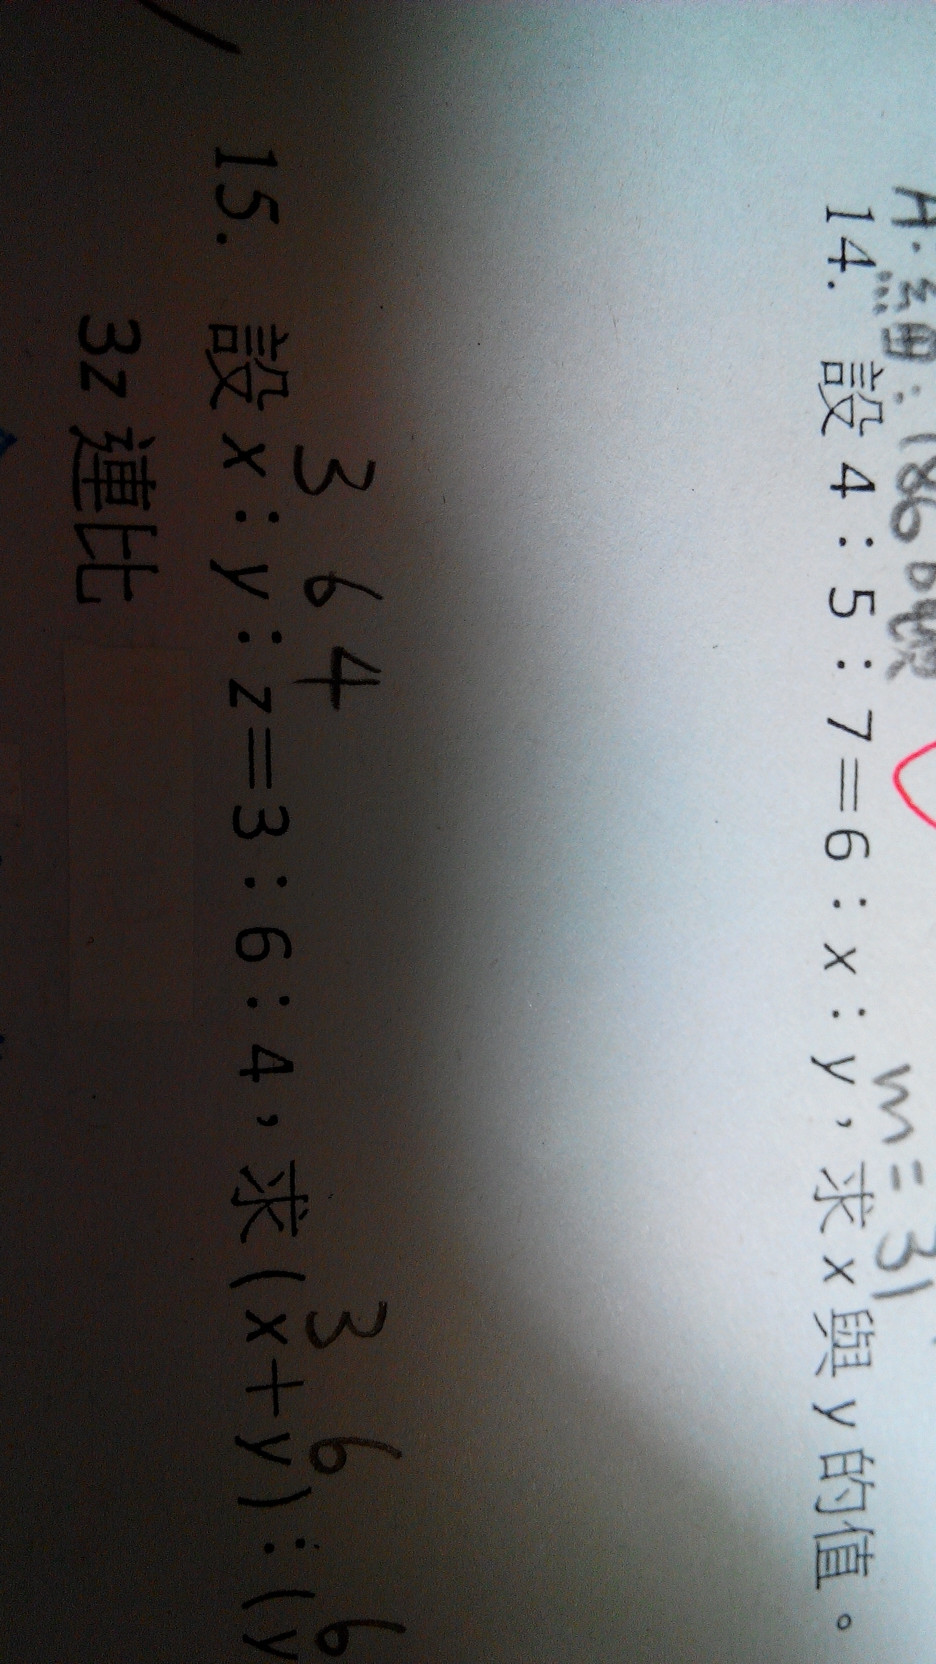 A.細：186 包
m=31
14. 設 4：5：7=6：x：y，求 x 與 y 的值。
3 6 4 3 6 6
15. 設 x：y：z=3：6：4，求(x+y)：(y
3z 連比